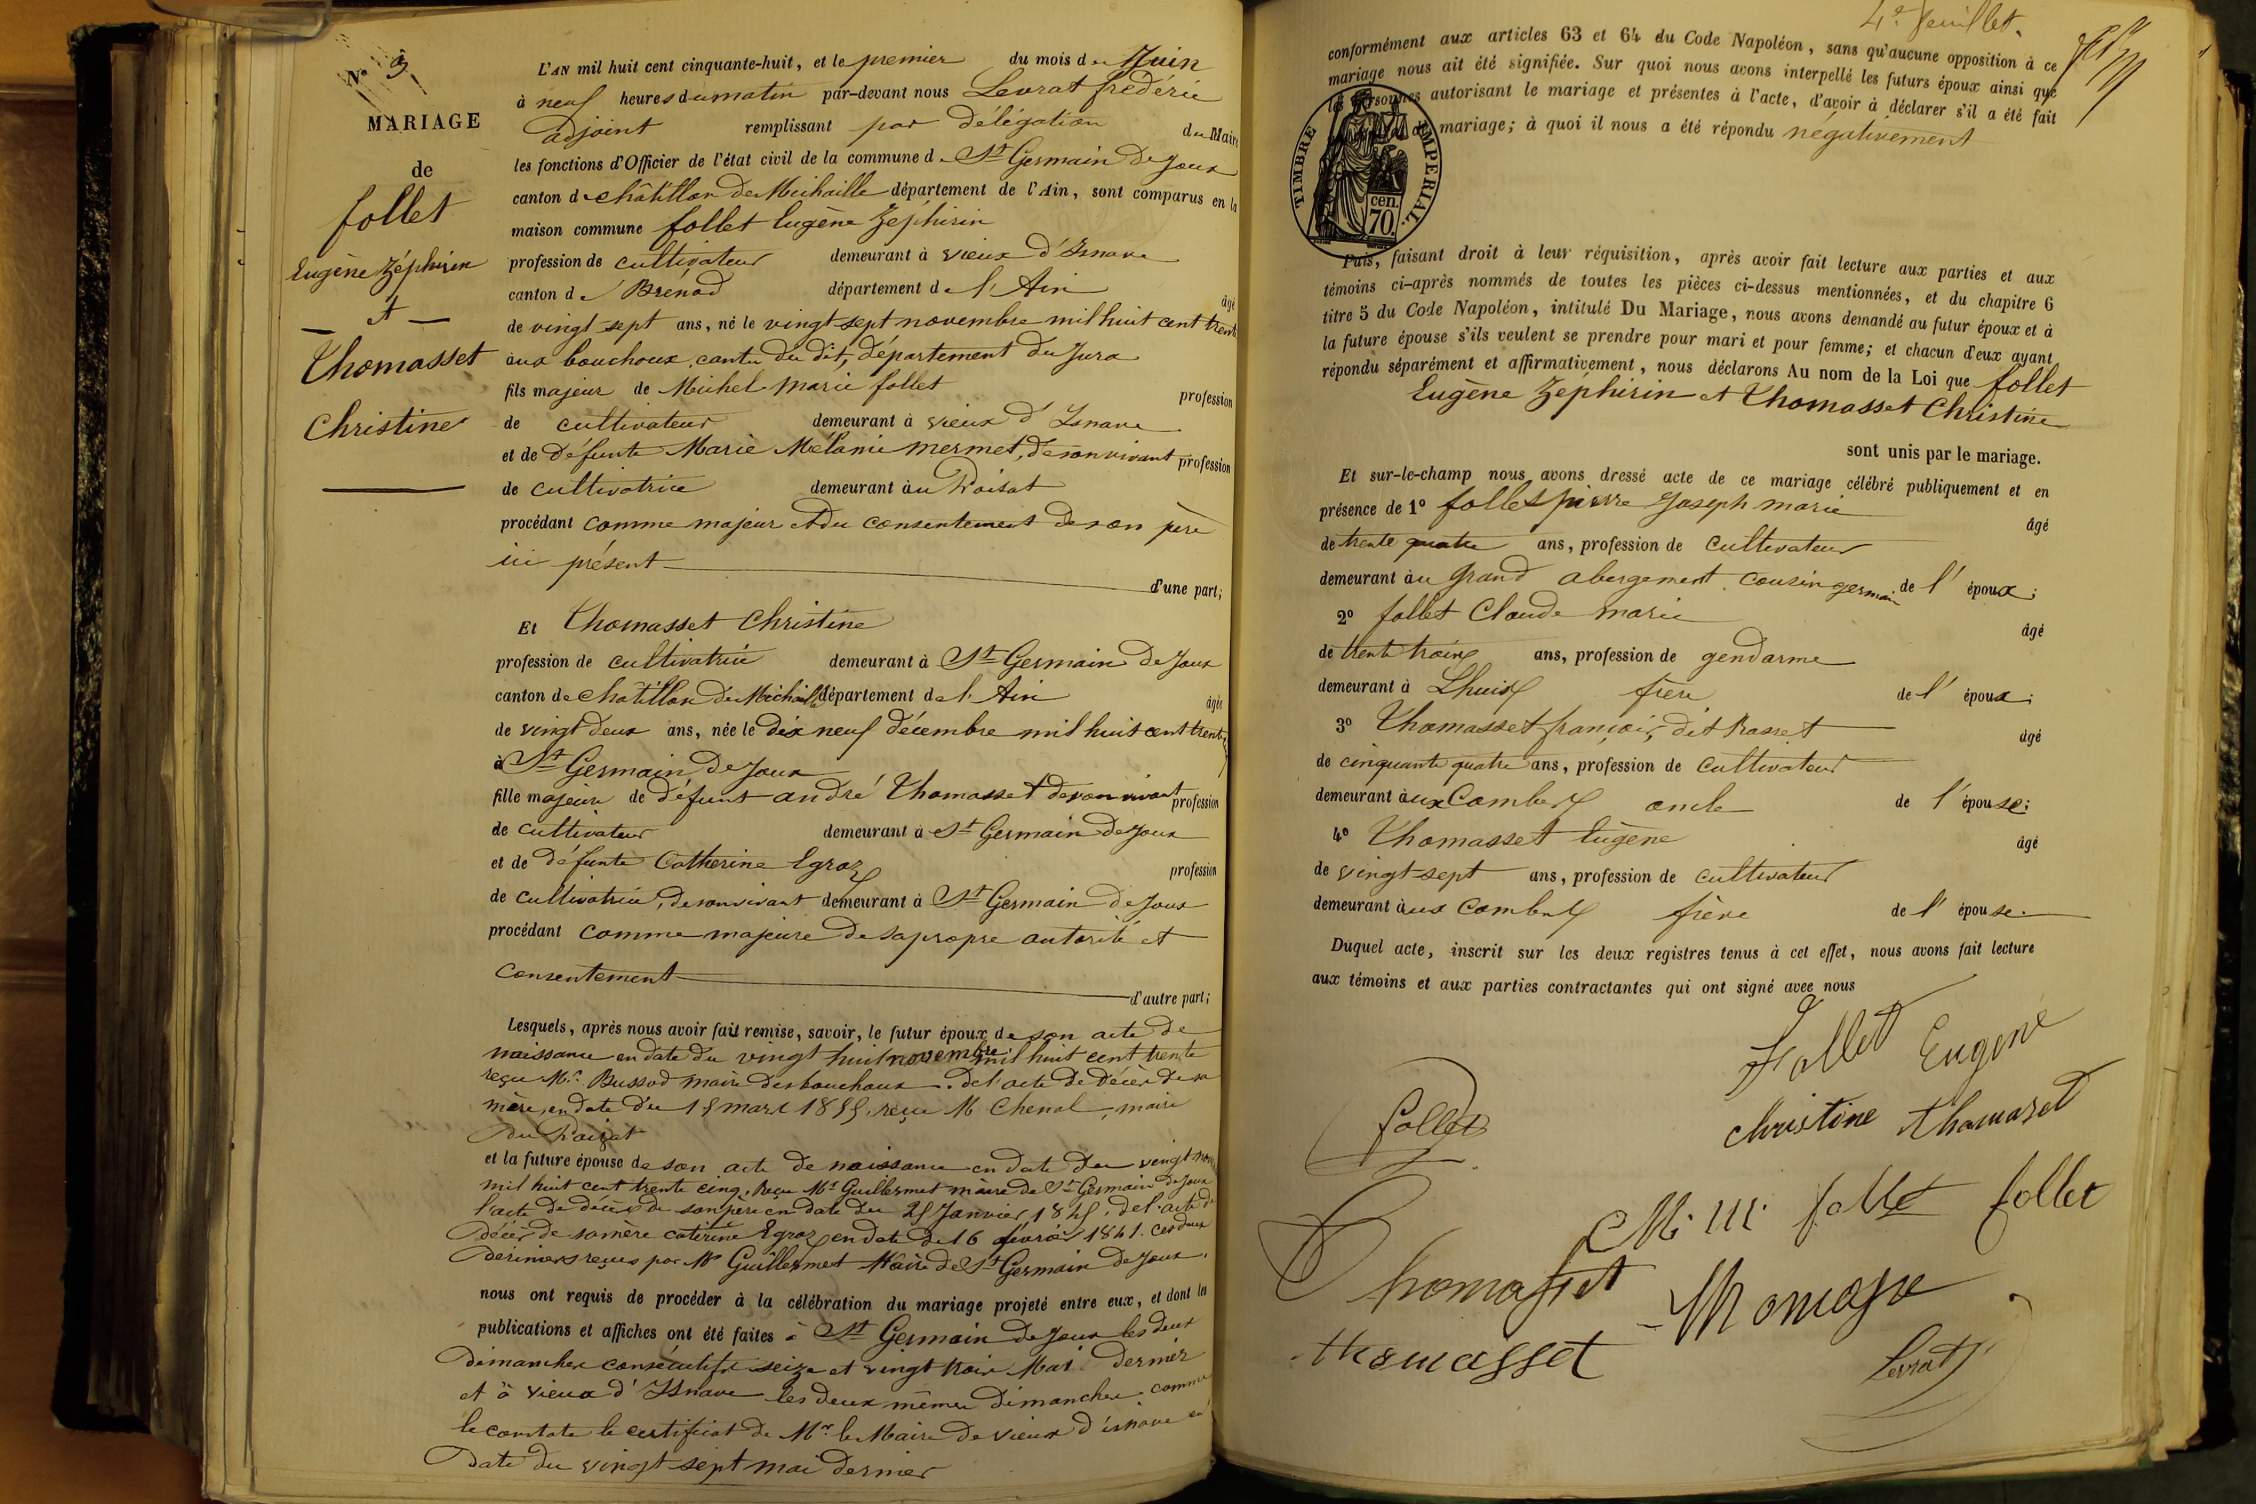 N° 3
MARIAGE
de
follet
Eugène Zéphirin
et
Thomasset
Christine
L'AN mil huit cent cinquante-huit, et le premier du mois de Juin
à neuf heures du matin par-devant nous Levrat frédéric
adjoint remplissant par délégation du Maire
les fonctions d'Officier de l'état civil de la commune d St Germain de Joux
canton de châtillon de Michaille département de l'Ain, sont comparus en la
maison commune follet Eugène Zéphirin
profession de cultivateur demeurant à vieux d'Isnave
canton de Brénod département de l'Ain âgé
de vingt-sept ans, né le vingt-sept novembre mil huit cent trente
aux bouchoux, canton du dit, département du Jura
fils majeur de Michel marie follet profession
de cultivateur demeurant à vieux d'Isnave
et de défunte Marie Mélanie mermet, de son vivant profession
de cultivatrice demeurant au Poisat
procédant comme majeur et du consentement de son père
ici présent d'une part;
Et Thomasset Christine
profession de cultivatrice demeurant à St Germain de Joux
canton de châtillon de Michaille département de l'Ain âgée
de vingt deux ans, née le dix neuf décembre mil huit cent trente
à St Germain de Joux
fille majeure de défunt andré Thomasset de son vivant profession
de cultivateur demeurant à St Germain de Joux
et de défunte Catherine Egraz profession
de cultivatrice, de son vivant demeurant à St Germain de Joux
procédant comme majeure de sa propre autorité et
consentement d'autre part;
Lesquels, après nous avoir fait remise, savoir, le futur époux de son acte de
naissance en date du vingt huit novembre mil huit cent trente
reçu Mr. Bussod maire des bouchoux. de l'acte de décès de sa
mère, en date du 15 mars 1855, reçu M Chenal, maire
du Poizat
et la future épouse de son acte de naissance en date du vingt
mil huit cent trente cinq, Reçu Mr Guillermet maire de St Germain de Joux
l'acte de décès de son père en date du 25 Janvier 1845, de l'acte de
décès de sa mère catérine Egraz en date du 16 février 1841. ces deux
derniers reçus par Mr Guillermet Maire de St Germain de Joux.
nous ont requis de procéder à la célébration du mariage projeté entre eux, et dont les
publications et affiches ont été faites à St Germain de Joux les deux
dimanches consécutifs seize et vingt trois Mai dernier
et à vieux d'Isnave les deux mêmes dimanches comme
le constate le certificat de Mr. le Maire de vieux d'isnave en
date du vingt-sept mai dernier
4e feuillet.
conformément aux articles 63 et 64 du Code Napoléon, sans qu'aucune opposition à ce
mariage nous ait été signifiée. Sur quoi nous avons interpellé les futurs époux ainsi que
les personnes autorisant le mariage et présentes à l'acte, d'avoir à déclarer s'il a été fait
mariage; à quoi il nous a été répondu négativement
TIMBRE IMPERIAL.
70. cen.
Puis, faisant droit à leur réquisition, après avoir fait lecture aux parties et aux
témoins ci-après nommés de toutes les pièces ci-dessus mentionnées, et du chapitre 6
titre 5 du Code Napoléon, intitulé Du Mariage, nous avons demandé au futur époux et à
la future épouse s'ils veulent se prendre pour mari et pour femme; et chacun d'eux ayant
répondu séparément et affirmativement, nous déclarons Au nom de la Loi que follet
Eugène Zéphirin et Thomasset Christine
sont unis par le mariage.
Et sur-le-champ nous avons dressé acte de ce mariage célébré publiquement et en
présence de 1° follet pierre Joseph marie âgé
de trente quatre ans, profession de cultivateur
demeurant au Grand abergement cousin germain de l'époux;
2° follet Claude marie âgé
de trente trois ans, profession de gendarme
demeurant à Lhuis frère de l'époux;
3° Thomasset françois, dit Rasset âgé
de cinquante quatre ans, profession de cultivateur
demeurant aux Combes oncle de l'épouse;
4° Thomasset Eugène âgé
de vingt-sept ans, profession de cultivateur
demeurant aux Combes frère de l'épouse.
Duquel acte, inscrit sur les deux registres tenus à cet effet, nous avons fait lecture
aux témoins et aux parties contractantes qui ont signé avec nous
follet Eugène
follet
christine thomaset
M. m. follet follet
Thomasset
thomasset
Levrat